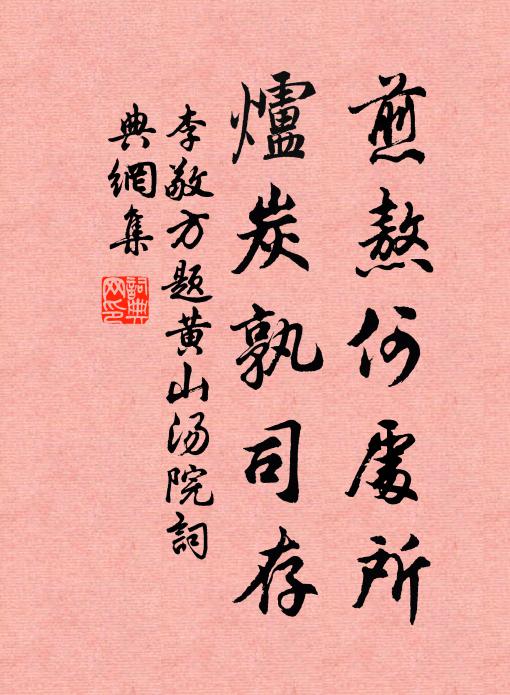 煎熬何處所
爐炭孰司存
李敬方題黄山汤院詞
典網集
詞典
网印